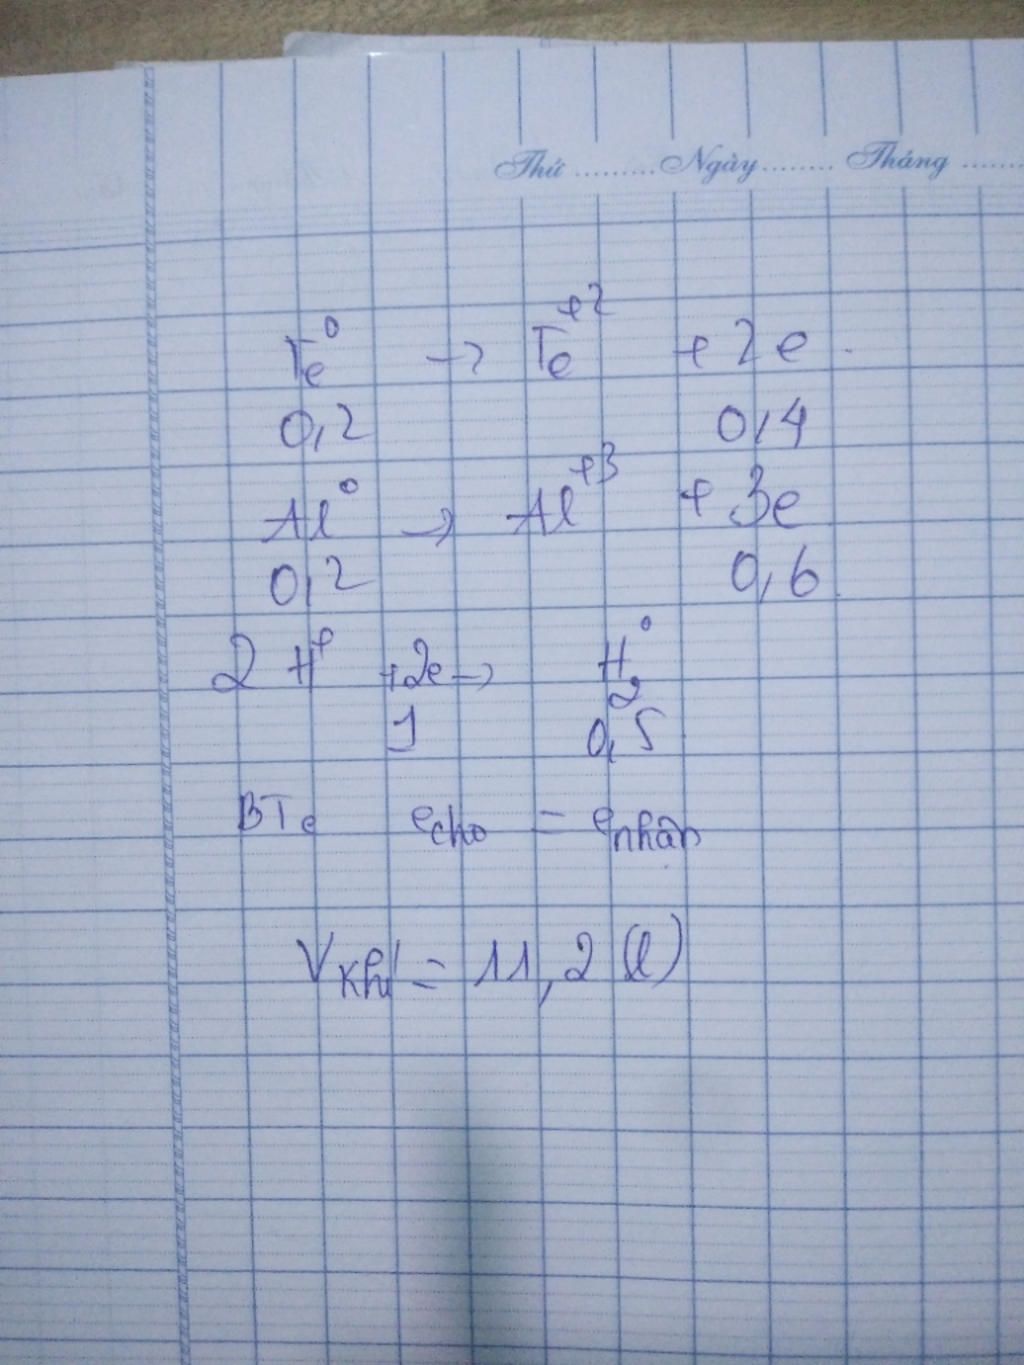 Thứ ......... Ngày ........ Tháng ......
Fe⁰ → Fe⁺² + 2e
0,2 0,4
Al⁰ → Al⁺³ + 3e
0,2 0,6
2 H⁺ +2e → H₂⁰
1 0,5
BTe e cho = e nhận
V khí = 11,2 (l)